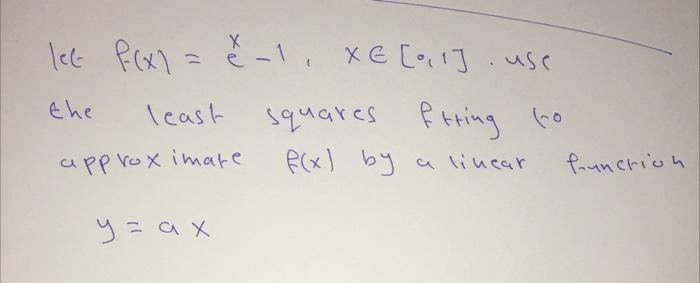 let f(x) = e^x - 1, x ∈ [0,1]. use
the least squares fitting to
approximate f(x) by a linear function
y = ax